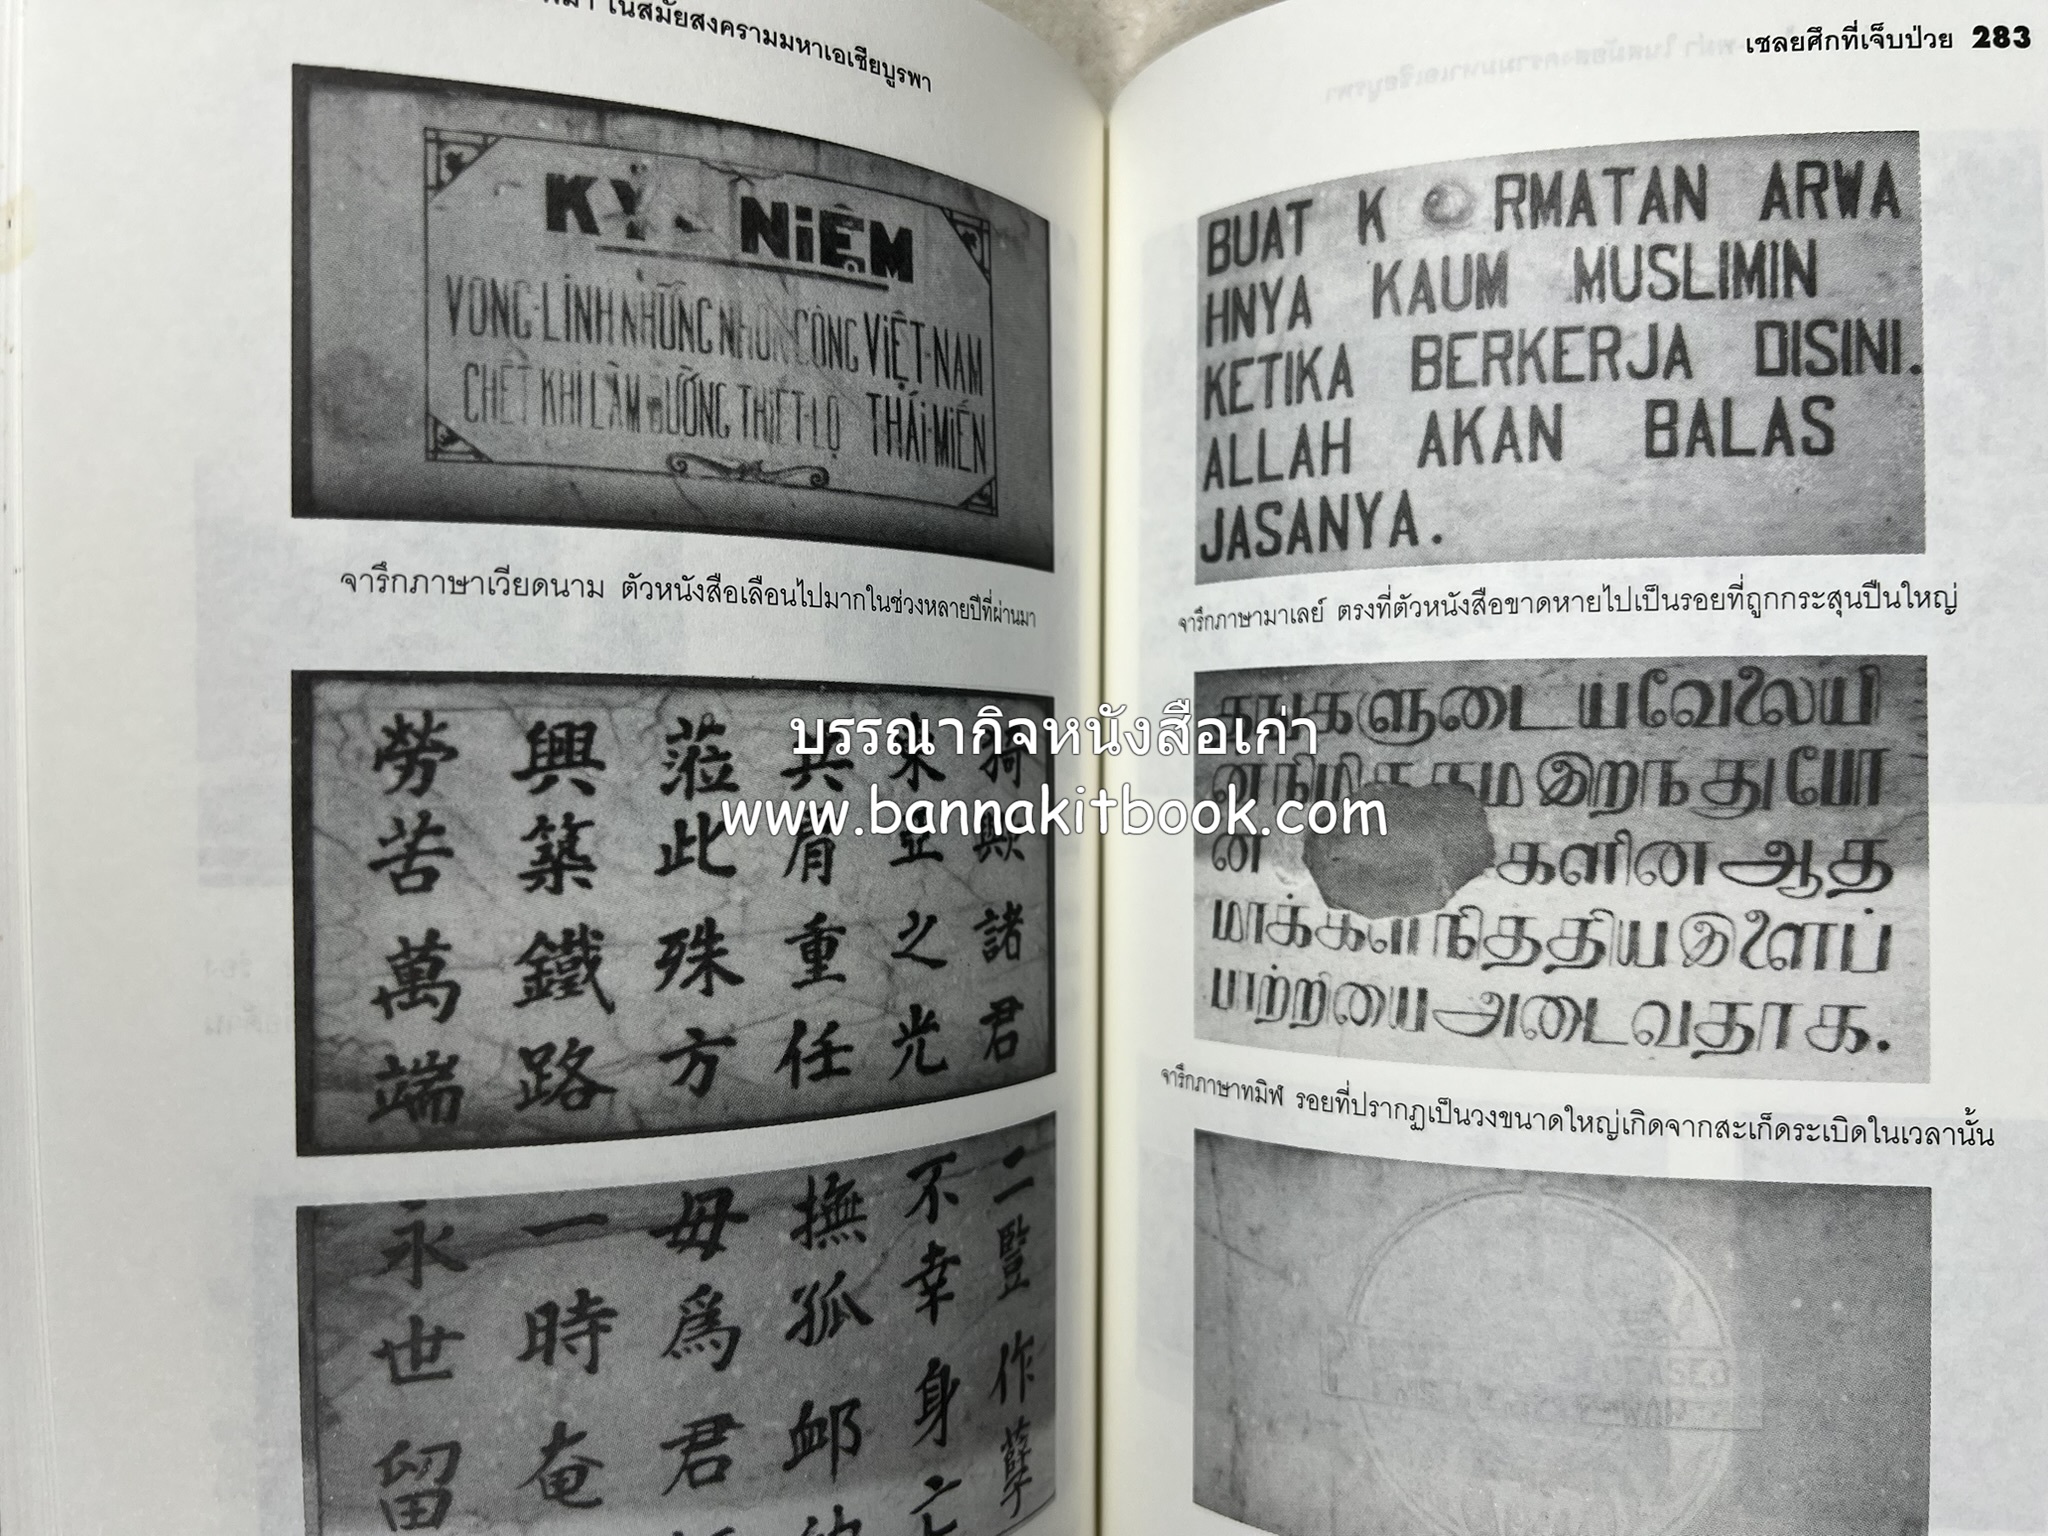 ในสมัยสงครามมหาเอเชียบูรพา
KỶ NIỆM
VONG-LINH NHỮNG NHƠN CÔNG VIỆT-NAM
CHẾT KHI LÀM ĐƯỜNG THIẾT-LỘ THÁI-MIẾN
จารึกภาษาเวียดนาม ตัวหนังสือเลือนไปมากในช่วงหลายปีที่ผ่านมา
諸君
東亞之光
共肩重任
蒞此殊方
興築鐵路
勞苦萬端
二豎作孽
不幸身亡
撫孤卹
毋為君
一時奄
永世留
เชลยศึกที่เจ็บป่วย 283
BUAT K RMATAN ARWA
HNYA KAUM MUSLIMIN
KETIKA BERKERJA DISINI.
ALLAH AKAN BALAS
JASANYA.
จารึกภาษามาเลย์ ตรงที่ตัวหนังสือขาดหายไปเป็นรอยที่ถูกกระสุนปืนใหญ่
தங்களுடையவேலையி
இறந்துபோ
ன களின் ஆத்
மாக்கள் நித்திய இளைப்
பாற்றியை அடைவதாக.
จารึกภาษาทมิฬ รอยที่ปรากฏเป็นวงขนาดใหญ่เกิดจากสะเก็ดระเบิดในเวลานั้น
บรรณากิจหนังสือเก่า
www.bannakitbook.com